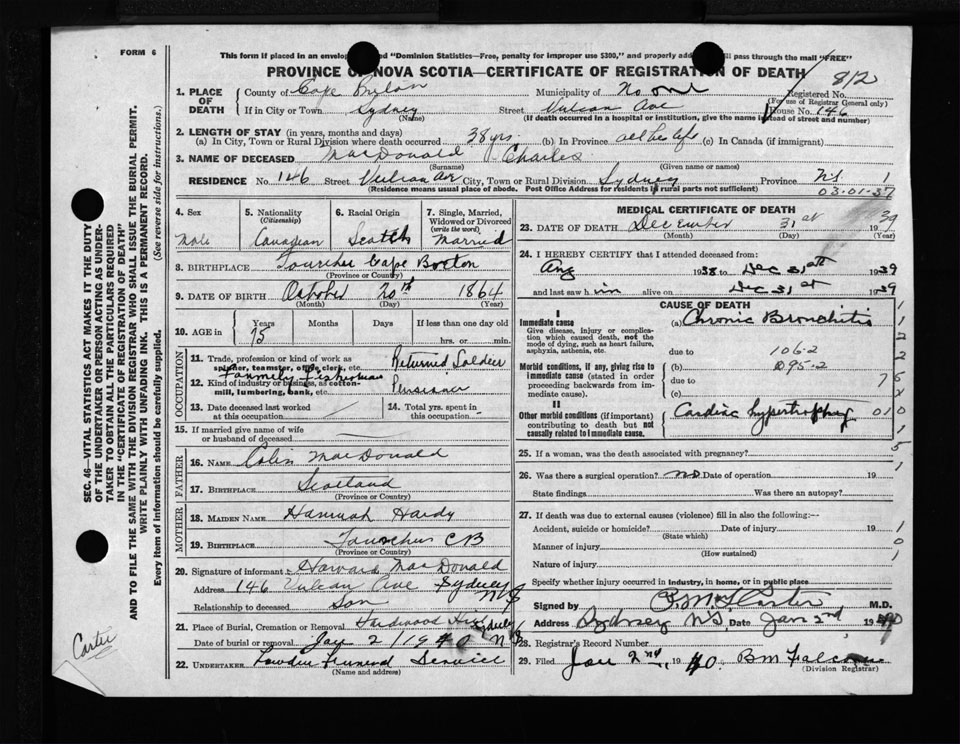 FORM 6
This form if placed in an envelope and "Dominion Statistics—Free, penalty for improper use $300," and properly addressed will pass through the mail "FREE"
PROVINCE OF NOVA SCOTIA—CERTIFICATE OF REGISTRATION OF DEATH
812
1. PLACE OF DEATH
County of Cape Breton Municipality of No one Registered No.
(For use of Registrar General only)
If in City or Town Sydney Street Vulcan Ave House No. 146
(Name) (If death occurred in a hospital or institution, give the name instead of street and number)
2. LENGTH OF STAY (in years, months and days)
(a) In City, Town or Rural Division where death occurred 38 yrs. (b) In Province all his life (c) In Canada (if immigrant)
3. NAME OF DECEASED MacDonald Charles
(Surname) (Given name or names)
RESIDENCE No. 146 Street Vulcan Ave City, Town or Rural Division Sydney Province N.S. 1
(Residence means usual place of abode. Post Office Address for residents in rural parts not sufficient) 03-01-37
4. Sex
Male
5. Nationality
(Citizenship)
Canadian
6. Racial Origin
Scotch
7. Single, Married, Widowed or Divorced
(write the word)
Married
8. BIRTHPLACE Cape Breton
(Province or Country)
9. DATE OF BIRTH October 20th 1864
(Month) (Day) (Year)
10. AGE in
Years Months Days If less than one day old
75 hrs. or min.
OCCUPATION
11. Trade, profession or kind of work as spinner, teamster, office clerk, etc. Returned Soldier
12. Kind of industry or business, as cotton-mill, lumbering, bank, etc. Pensioner
Formerly Fisherman
13. Date deceased last worked at this occupation
14. Total yrs. spent in this occupation
15. If married give name of wife or husband of deceased
FATHER
16. NAME Colin MacDonald
17. BIRTHPLACE Scotland
(Province or Country)
MOTHER
18. MAIDEN NAME Hannah Hardy
19. BIRTHPLACE CB
(Province or Country)
20. Signature of informant Howard MacDonald
Address 146 Vulcan Ave Sydney NS
Relationship to deceased Son
21. Place of Burial, Cremation or Removal Hardwood Hill Sydney
Date of burial or removal Jan 2 / 1940 NS
22. UNDERTAKER Funeral Service
(Name and address)
MEDICAL CERTIFICATE OF DEATH
23. DATE OF DEATH December 31st 1939
(Month) (Day) (Year)
24. I HEREBY CERTIFY that I attended deceased from:
Aug 1938 to Dec 31st 1939
and last saw him alive on Dec 31st 1939
CAUSE OF DEATH
I
Immediate cause
Give disease, injury or complication which caused death, not the mode of dying, such as heart failure, asphyxia, asthenia, etc.
(a) Chronic Bronchitis
due to 106-2
Morbid conditions, if any, giving rise to immediate cause (stated in order proceeding backwards from immediate cause).
(b) 095-2
due to 7
(c)
II
Other morbid conditions (if important) contributing to death but not causally related to immediate cause.
Cardiac hypertrophy
25. If a woman, was the death associated with pregnancy?
26. Was there a surgical operation? No Date of operation 19
State findings Was there an autopsy?
27. If death was due to external causes (violence) fill in also the following:—
Accident, suicide or homicide? Date of injury 19
(State which)
Manner of injury
(How sustained)
Nature of injury
Specify whether injury occurred in industry, in home, or in public place
Signed by M.D.
Address Sydney NS Date Jan 2nd 1940
28. Registrar's Record Number
29. Filed Jan 2nd, 1940
(Division Registrar)
SEC. 46—VITAL STATISTICS ACT MAKES IT THE DUTY
OF THE UNDERTAKER OR PERSON ACTING AS UNDER-
TAKER TO OBTAIN ALL THE PARTICULARS REQUIRED
IN THE "CERTIFICATE OF REGISTRATION OF DEATH"
AND TO FILE THE SAME WITH THE DIVISION REGISTRAR WHO SHALL ISSUE THE BURIAL PERMIT.
WRITE PLAINLY WITH UNFADING INK. THIS IS A PERMANENT RECORD.
Every item of information should be carefully supplied. (See reverse side for instructions.)
Carter